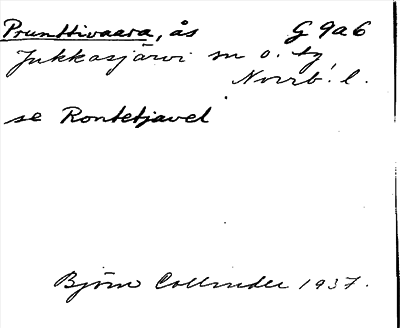 Prunttivaara, ås G 9a6
Jukkasjärvi sn o. tg
Norrb. l.
se Rontetjavel
Björn Collinder 1937.